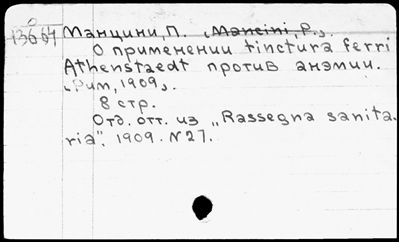 13664 Манцини, П. [Mancini, P.].
О применении tinctura ferri
Athenstaedt против анэмии.
[Рим, 1909].
8 стр.
Отд. отт. из „Rassegna sanita-
ria". 1909. N27.